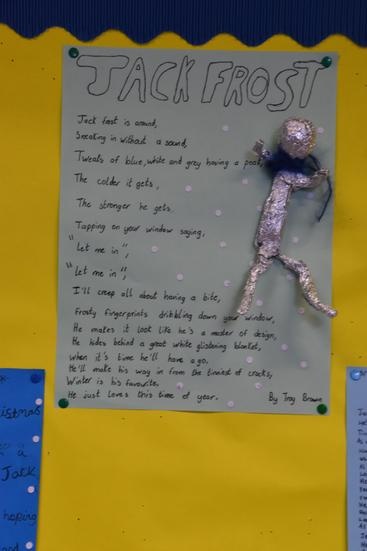 JACK FROST
Jack frost is around,
Sneaking in without a sound,
Tweats of blue, white and grey having a pook,
The colder it gets,
The stronger he gets.
Tapping on your window saying,
"Let me in",
"Let me in",
I'll creep all about having a bite,
Frosty fingerprints dribbling down your window,
He makes it look like he's a master of design,
He hides behind a great white glistening blanket,
when it's time he'll have a go.
He'll make his way in from the tiniest of cracks,
Winter is his favourite,
He just loves this time of year.
By Troy Brown
istmas
Jack
hoping
and